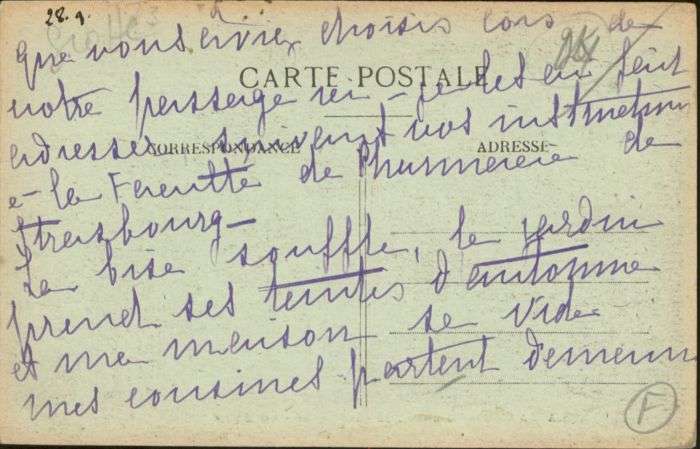 28.9
que vous aviez choisis lors de
CARTE POSTALE
votre passage ici - je les ai fait
adresser suivant vos instructions
CORRESPONDANCE
ADRESSE
à la Faculté de Pharmacie de
Strasbourg -
La bise souffle, le jardin
prend ses teintes d'automne
et ma maison se vide
mes cousines partent demain
F